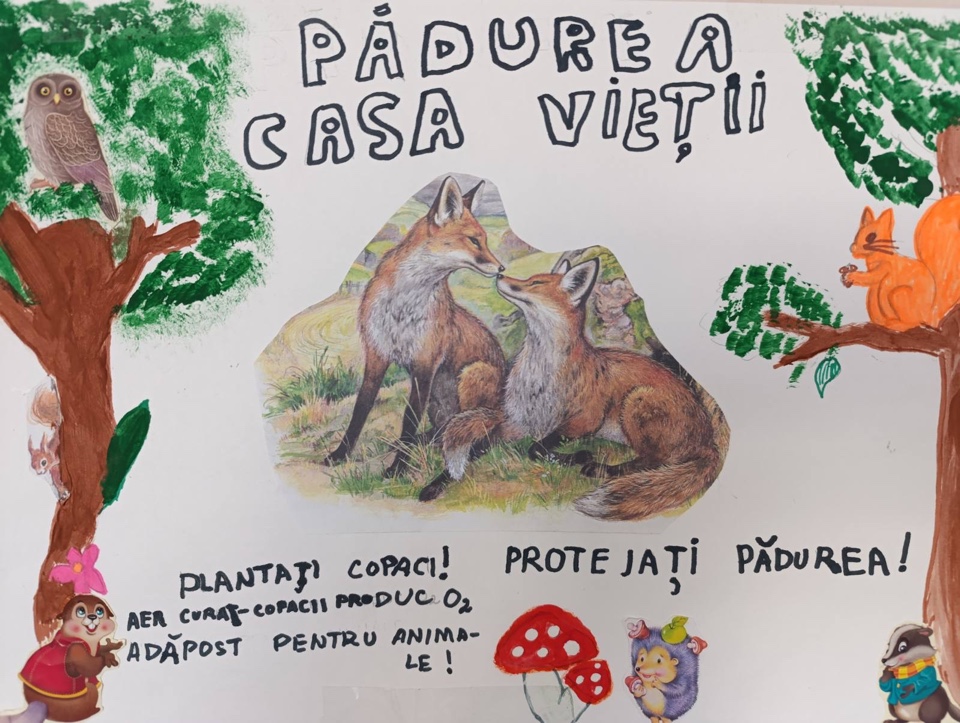 PĂDUREA
CASA VIEȚII
PLANTAȚI COPACI!
PROTEJAȚI PĂDUREA!
AER CURAT-COPACII PRODUC O₂
ADĂPOST PENTRU ANIMA-
LE!